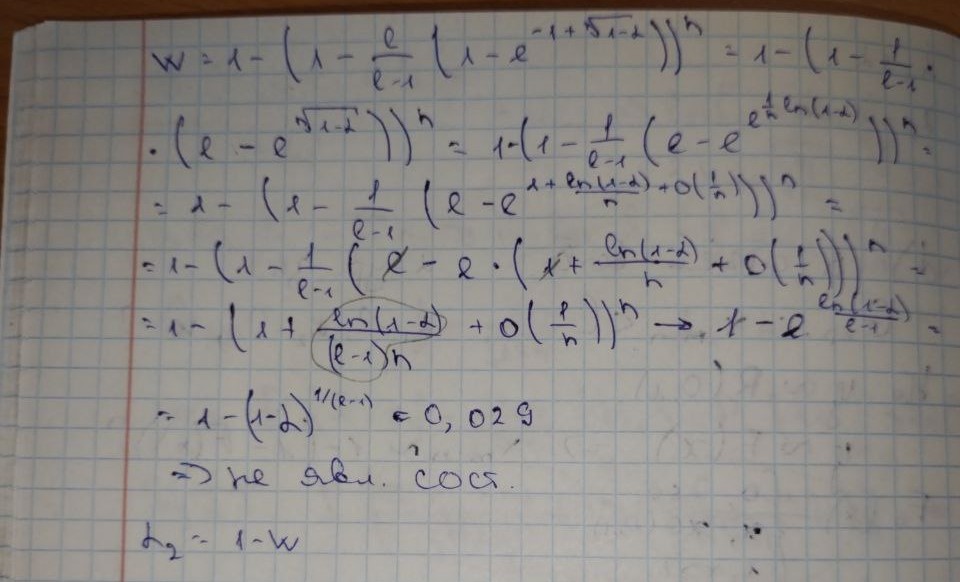 W = 1 - (1 - e/(e-1) (1 - e^(-1 + ⁿ√(1-α))))^n = 1 - (1 - 1/(e-1) ·
· (e - e^(ⁿ√(1-α))))^n = 1 - (1 - 1/(e-1) (e - e^(e^(1/n ln(1-α)))))^n =
= 1 - (1 - 1/(e-1) (e - e^(1 + ln(1-α)/n + o(1/n))))^n =
= 1 - (1 - 1/(e-1) (e - e · (1 + ln(1-α)/n + o(1/n))))^n =
= 1 - (1 + ln(1-α)/((e-1)n) + o(1/n))^n → 1 - e^(ln(1-α)/(e-1)) =
= 1 - (1-α)^(1/(e-1)) = 0,029
=> не явл. сост.
α₂ = 1 - W